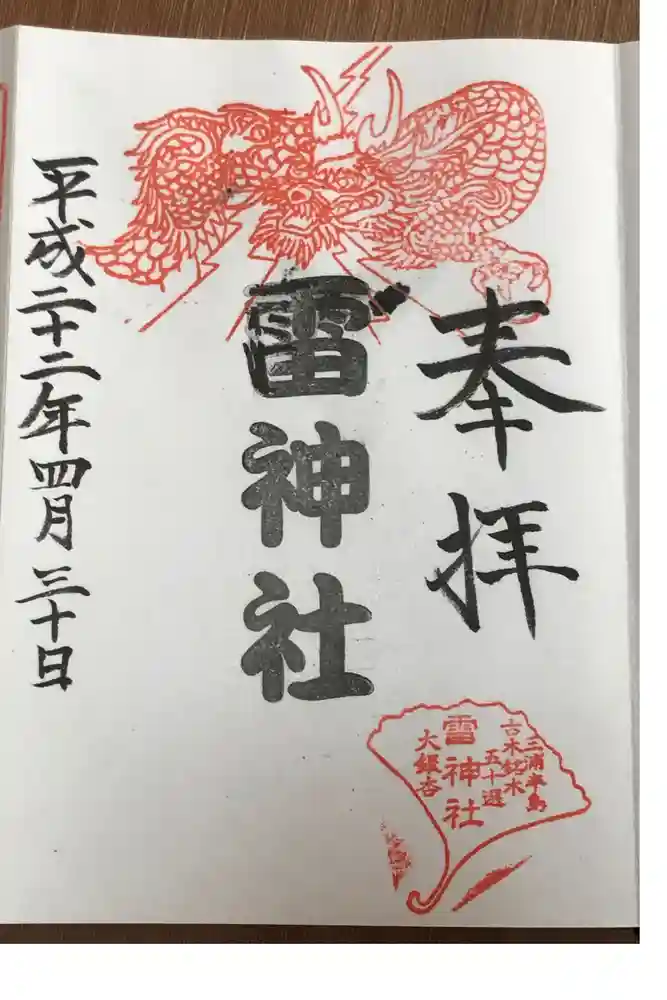 奉拝
雷神社
平成二十二年四月三十日
三浦半島
古木銘木
五十選
雷神社
大銀杏